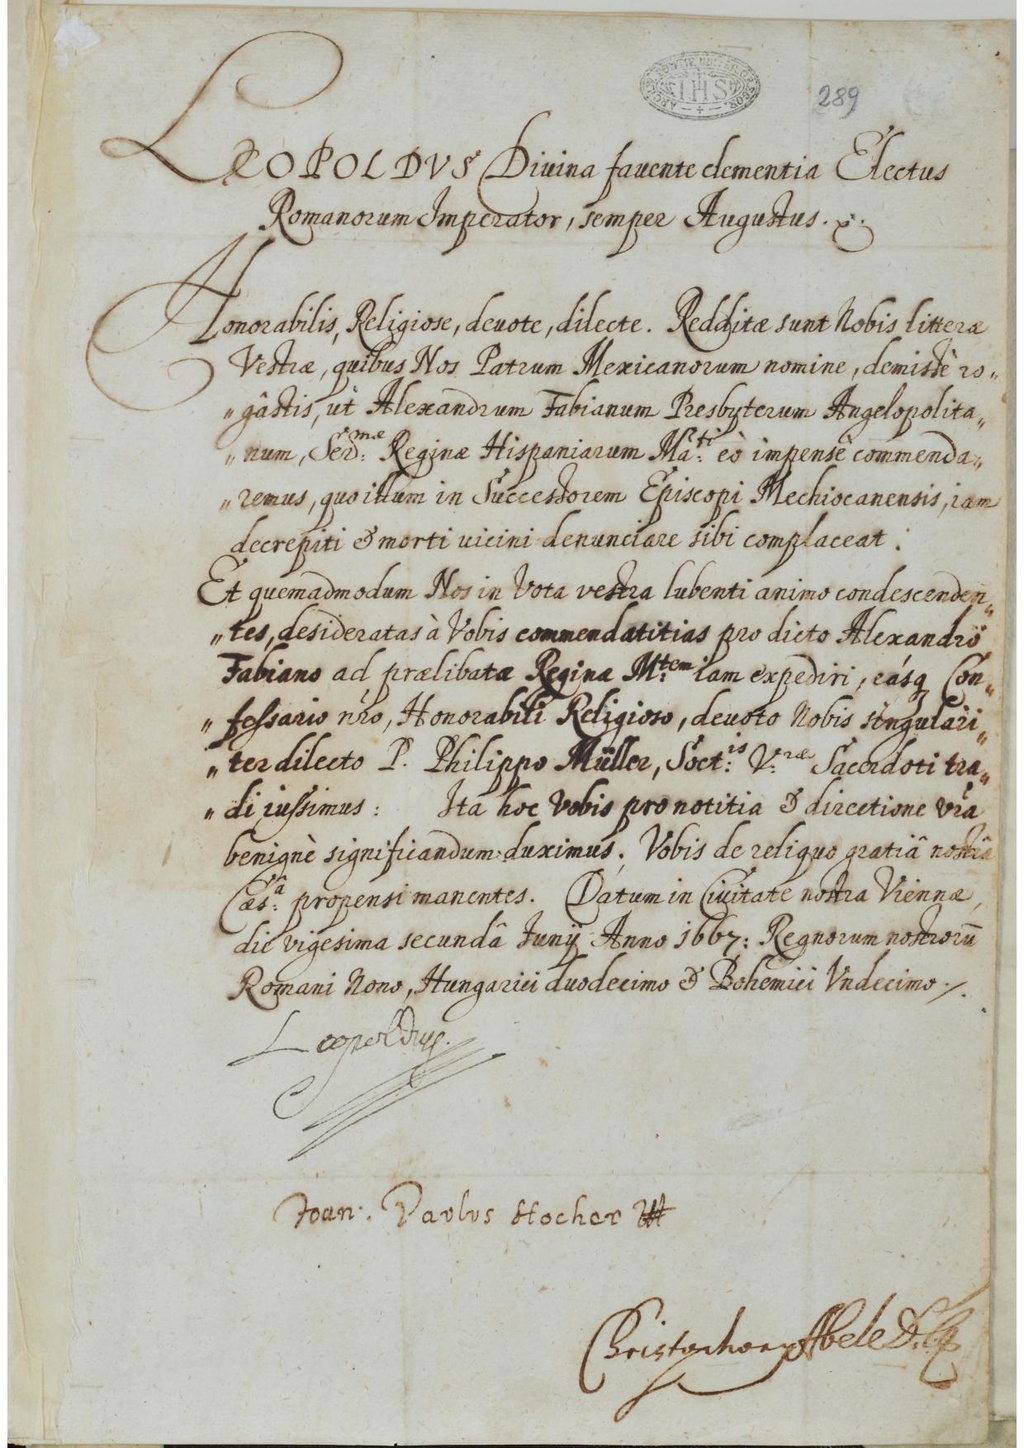 289
IHS
LEOPOLDVS Diuina fauente clementia Electus
Romanorum Imperator, semper Augustus. &.
Honorabilis, Religiose, deuote, dilecte. Redditæ sunt Nobis litteræ
Vestræ, quibus Nos Patrum Mexicanorum nomine, demissè ro„
„gâstis, ut Alexandrum Fabianum Presbyterum Angelopolita„
„num, Ser:mæ Reginæ Hispaniarum Ma:ti eò impensè commenda„
„remus, quo illum in Successorem Episcopi Mechiocanensis, iam
decrepiti & morti uicini denunciare sibi complaceat:
Et quemadmodum Nos in Vota vestra lubenti animo condescenden„
„tes, desideratas à Vobis commendatitias pro dicto Alexandro
Fabiano ad prælibatæ Reginæ M:tem iam expediri, eásq Con„
„fessario nro, Honorabili Religioso, deuoto Nobis singulari„
„ter dilecto P. Philippo Müller, Soct:is V:ræ Sacerdoti tra„
„di iussimus: Ita hoc Vobis pro notitia & directione vra
benignè significandum duximus. Vobis de reliquo gratiâ nostrâ
Cæs:â propensi manentes. Datum in Ciuitate nostra Viennæ,
die vigesima secundâ Junij Anno 1667: Regnorum nostrorū
Romani Nono, Hungarici duodecimo & Bohemici Vndecimo./.
Leopoldus.
Joan: Paulus Hocher
Christophorus Abele